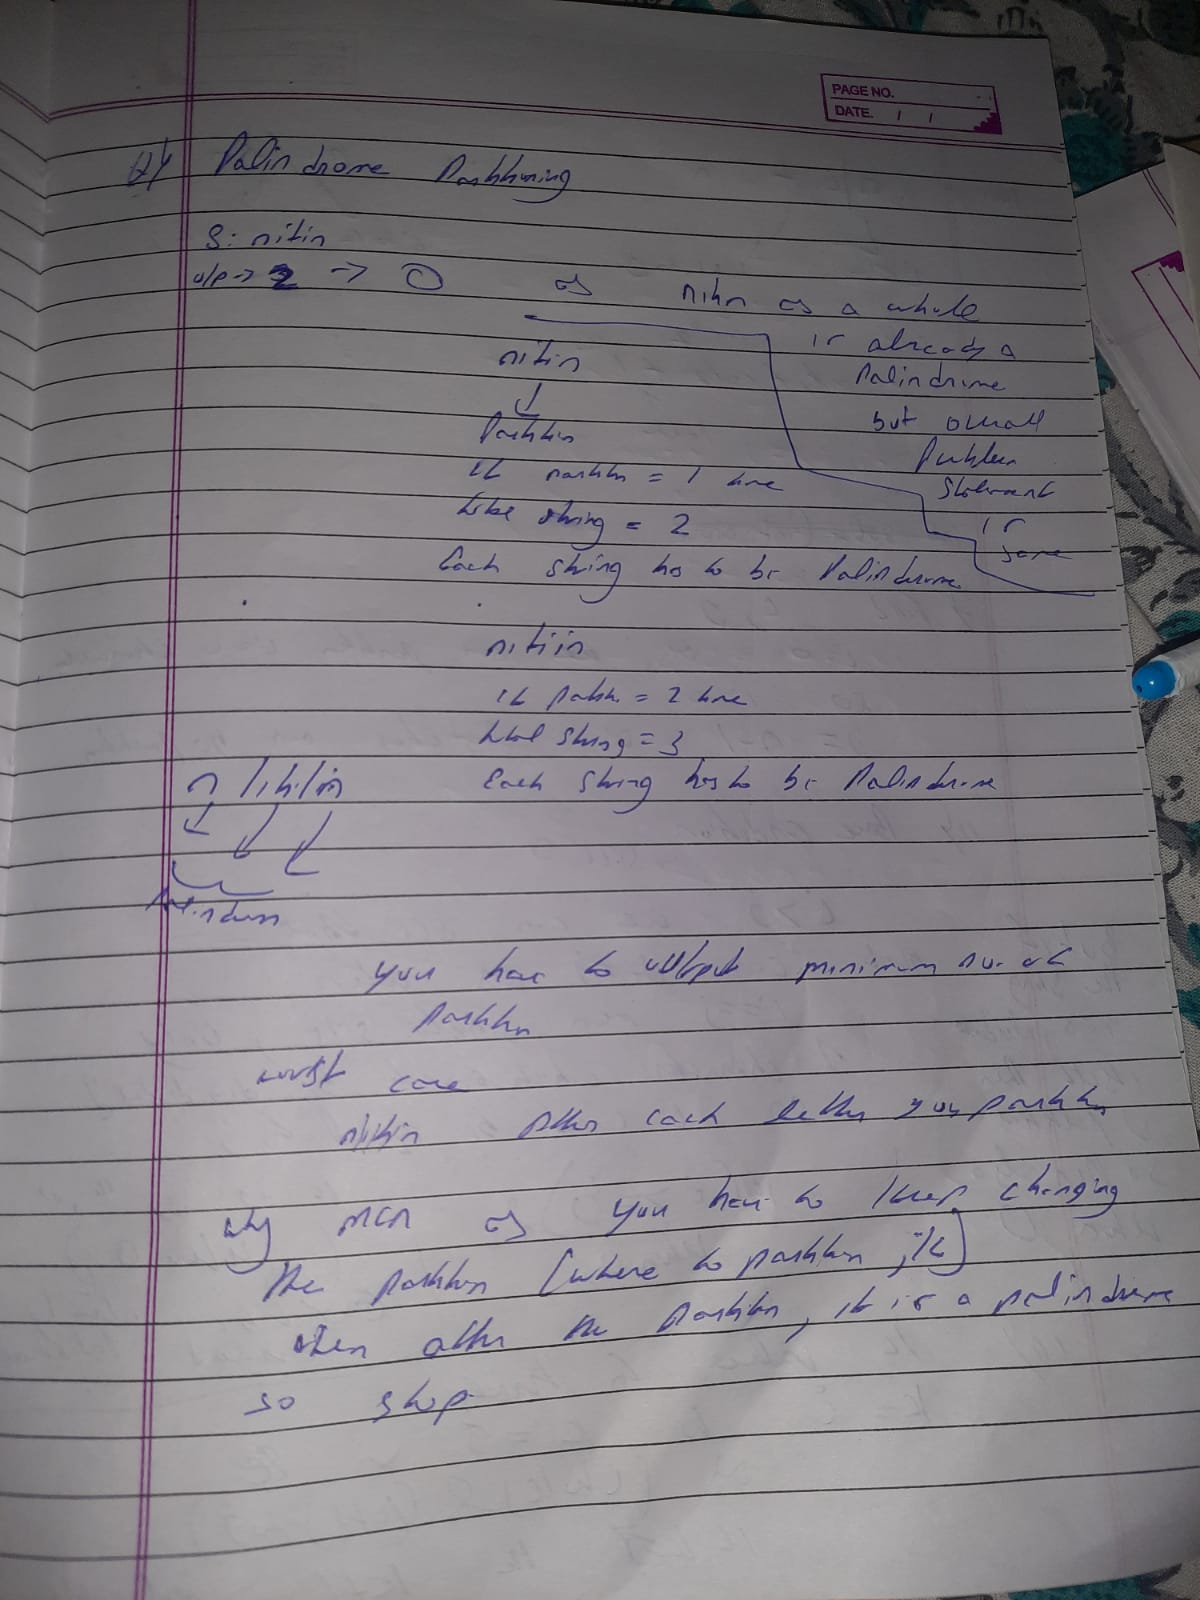 PAGE NO.
DATE. / /
Palindrome Partitioning
S: nitin
o/p -> 2 -> 0 as nitin as a whole
is already a
nitin
Palindrome
but overall
Partition
Problem
if partition = 1 time
statement
total string = 2
is
same
Each string has to be Palindrome
nitiin
if partition = 2 time
total string = 3
n/iti/in Each string has to be Palindrome
Palindrome
you have to output minimum no. of
Partition
worst case
n/i/t/i/n After each letter you partition
Why MCM as you have to keep changing
the partition [where to partition, ik]
when after the partition, it is a palindrome
so stop